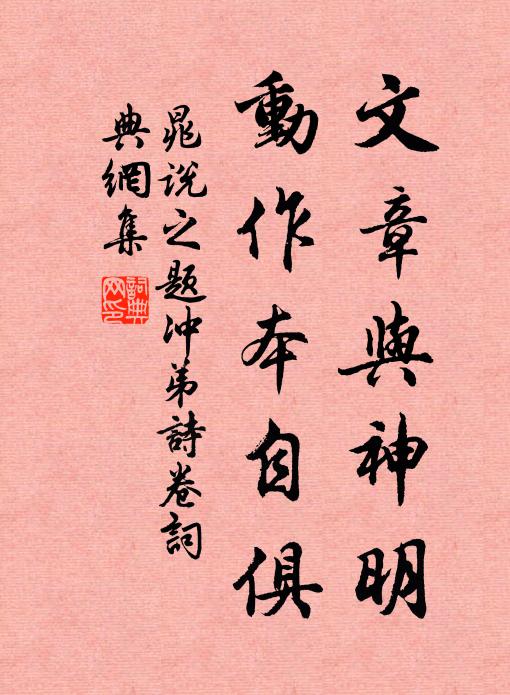 文章與神明
動作本自俱
晁説之題沖弟詩卷詞
典網集
詞典
网印